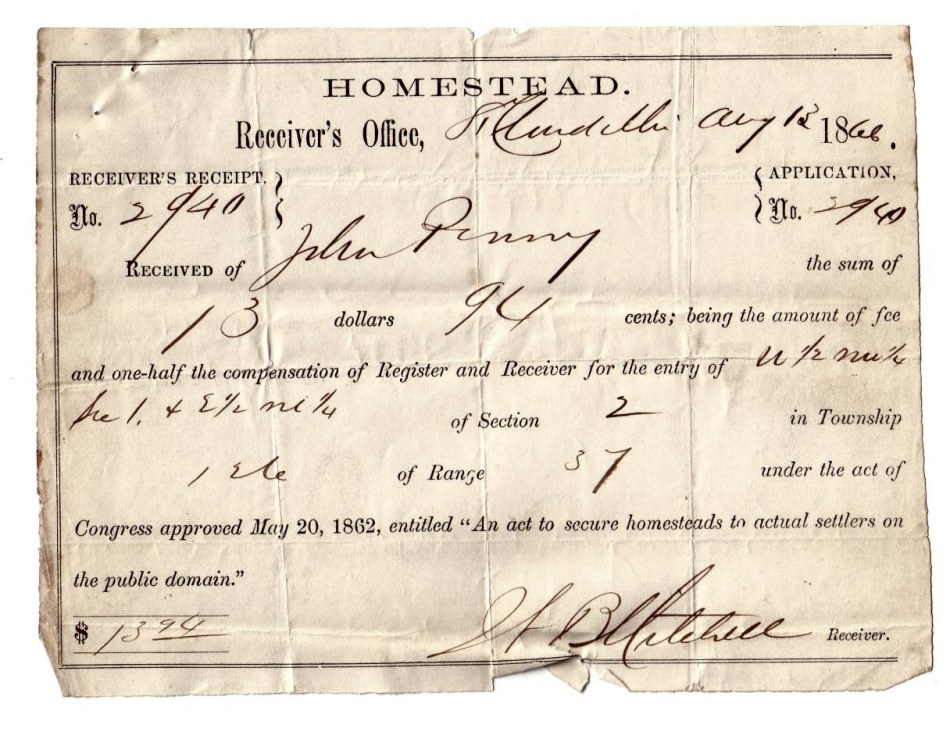 HOMESTEAD.
Receiver's Office, St Cloud Min Aug 13 1866.
RECEIVER'S RECEIPT, } { APPLICATION,
No. 2940 } { No. 2940
RECEIVED of John Penny the sum of
13 dollars 94 cents; being the amount of fee
and one-half the compensation of Register and Receiver for the entry of W 1/2 nw 1/4
Sec 1. & E 1/2 ne 1/4 of Section 2 in Township
126 of Range 37 under the act of
Congress approved May 20, 1862, entitled "An act to secure homesteads to actual settlers on
the public domain."
$ 13 94 B Mitchell Receiver.